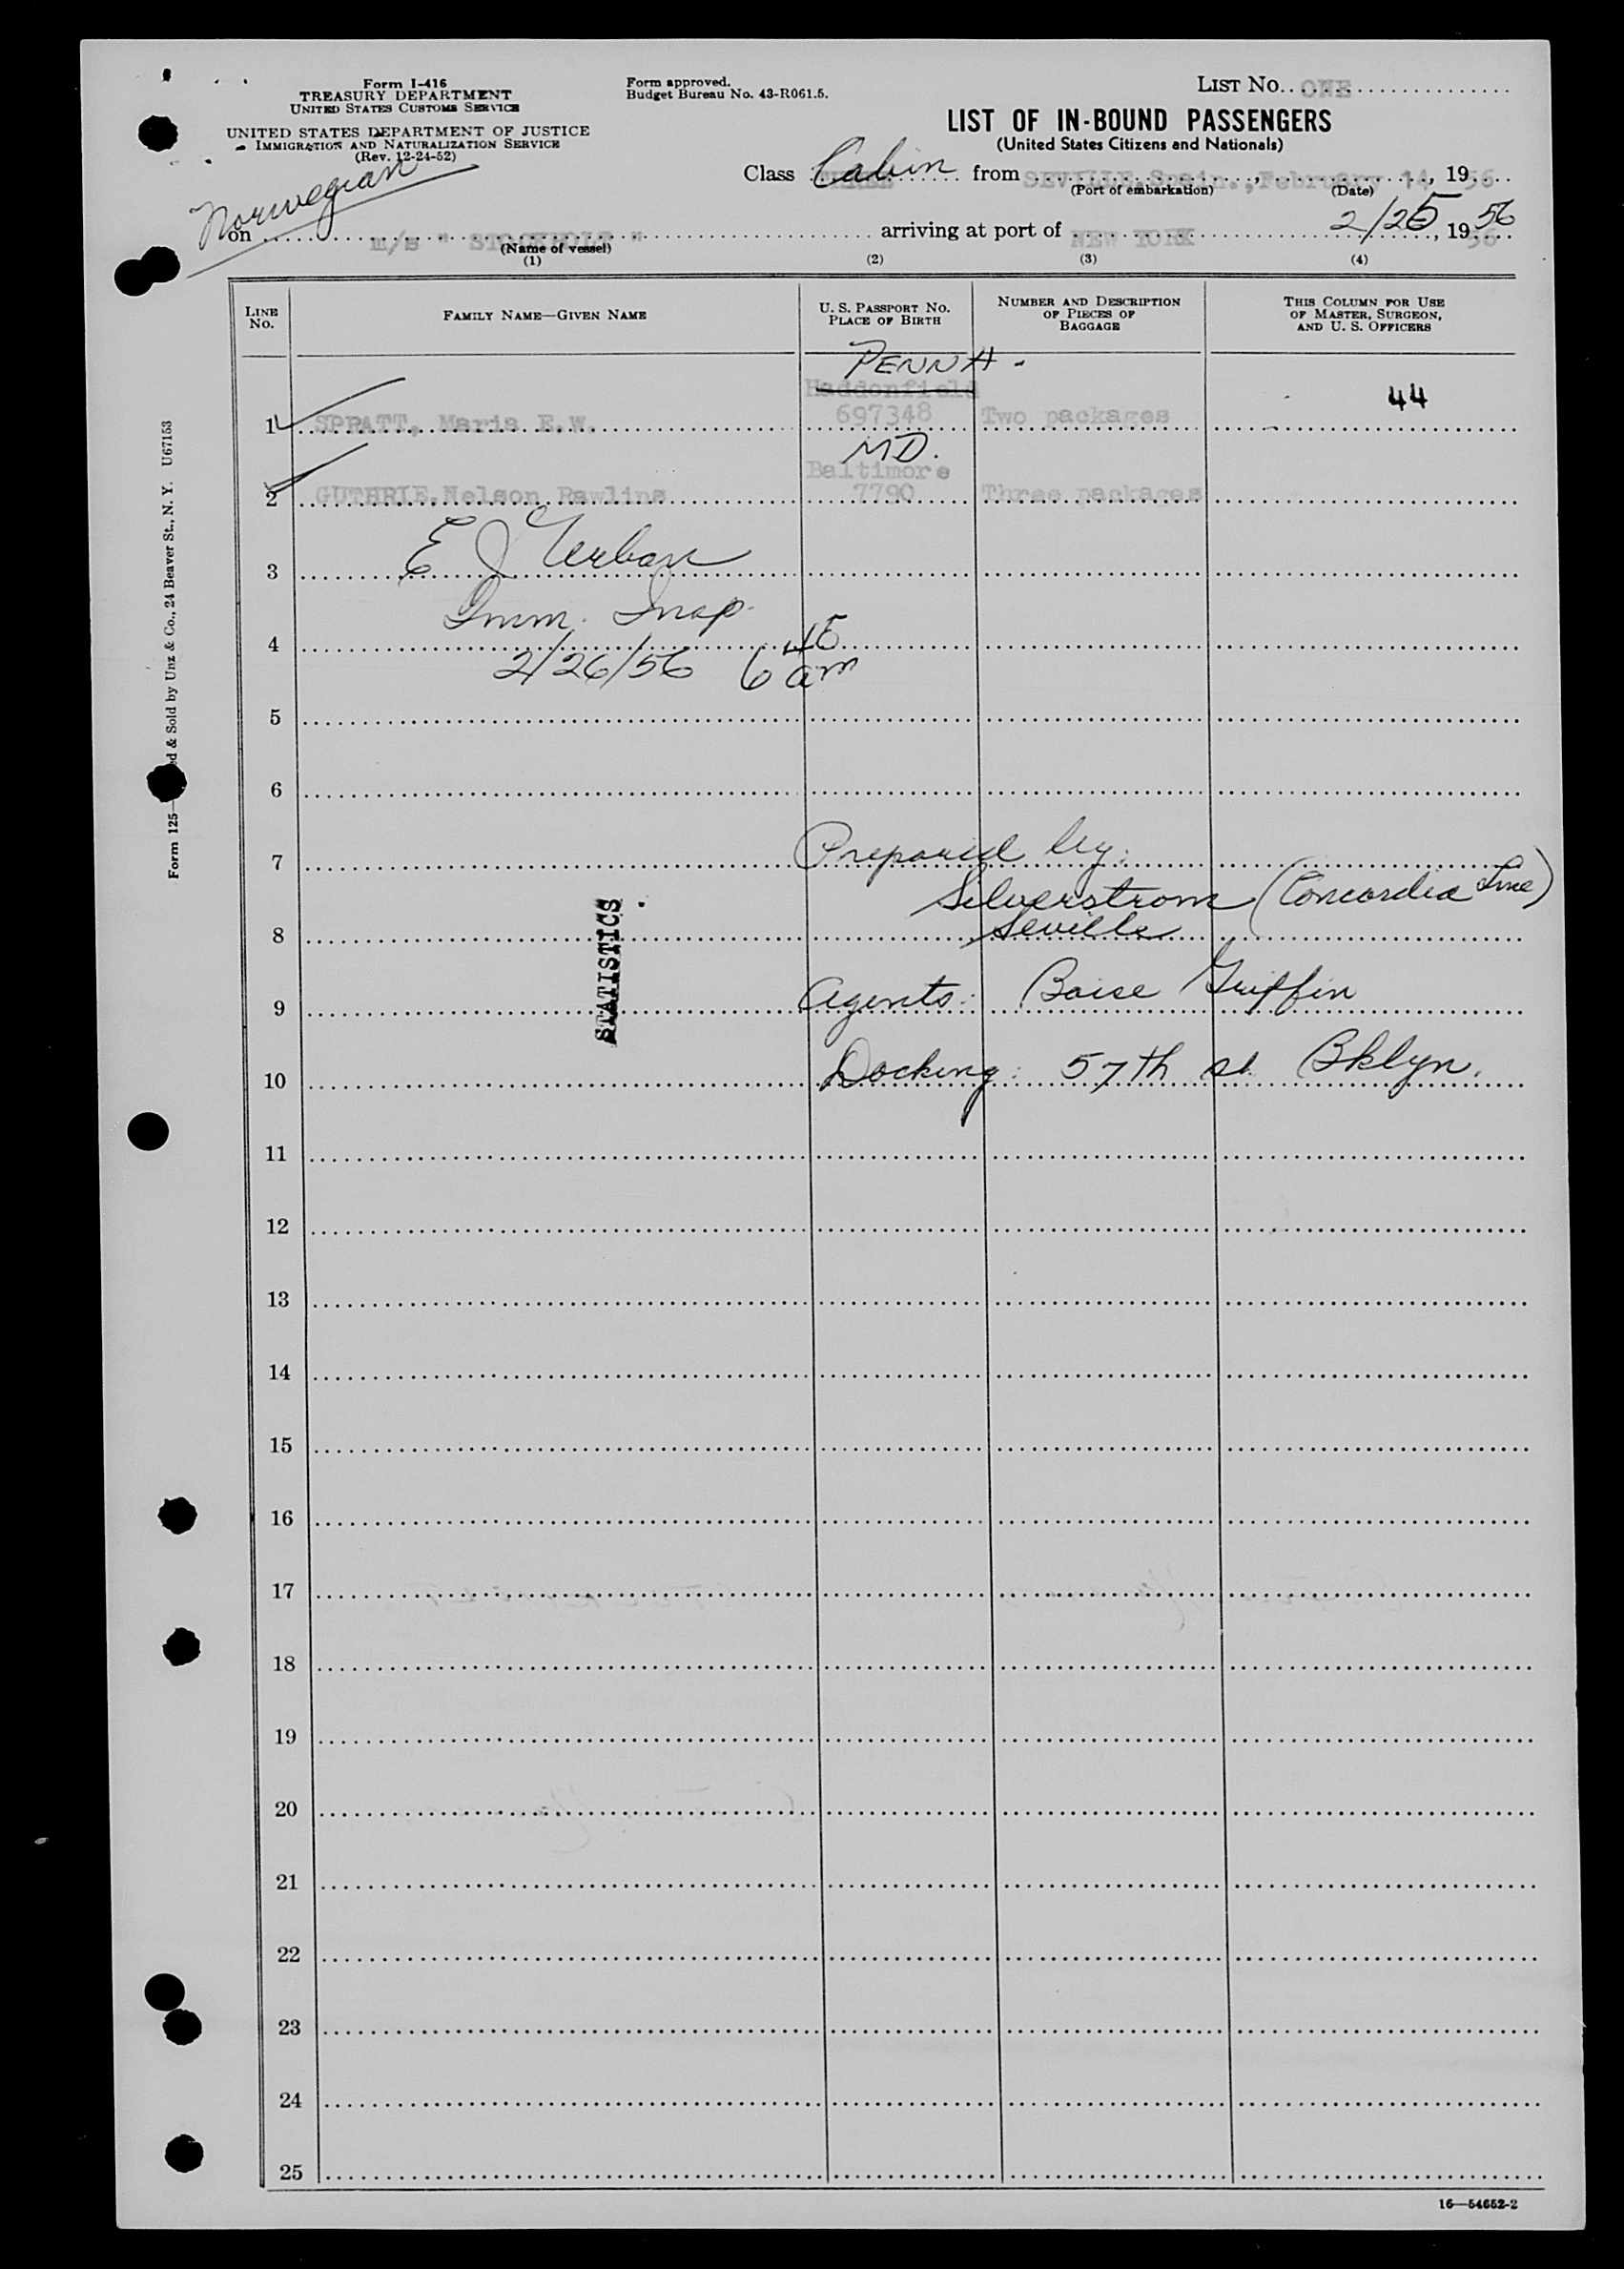 Form I-416
TREASURY DEPARTMENT
UNITED STATES CUSTOMS SERVICE
UNITED STATES DEPARTMENT OF JUSTICE
IMMIGRATION AND NATURALIZATION SERVICE
(Rev. 12-24-52)
Form approved.
Budget Bureau No. 43-R061.5.
LIST No. ONE
LIST OF IN-BOUND PASSENGERS
(United States Citizens and Nationals)
Class Cabin from SEVILLE, Spain., February 14, 1956
(Port of embarkation) (Date)
Norwegian
on m/s " " arriving at port of NEW YORK 2/25, 1956 56
(Name of vessel)
(1) (2) (3) (4)
LINE No. FAMILY NAME—GIVEN NAME U. S. PASSPORT NO. PLACE OF BIRTH NUMBER AND DESCRIPTION OF PIECES OF BAGGAGE THIS COLUMN FOR USE OF MASTER, SURGEON, AND U. S. OFFICERS
PENNA.
Haddonfield 44
1 SPRATT, Maris E.W. 697348 Two packages
MD.
Baltimore
2 GUTHRIE, Nelson Rawlins 7790 Three packages
3 E J Urban
Imm. Insp.
4
2/26/56 6 45 am
5
6
7 Prepared by:
Silverstrom (Concordia Line)
8 Seville
9 Agents: Boise Griffin
10 Docking: 57th st. Bklyn.
STATISTICS
11
12
13
14
15
16
17
18
19
20
21
22
23
24
25
16—54652-2
Form 125— ed & Sold by Unz & Co., 24 Beaver St., N. Y. U67153